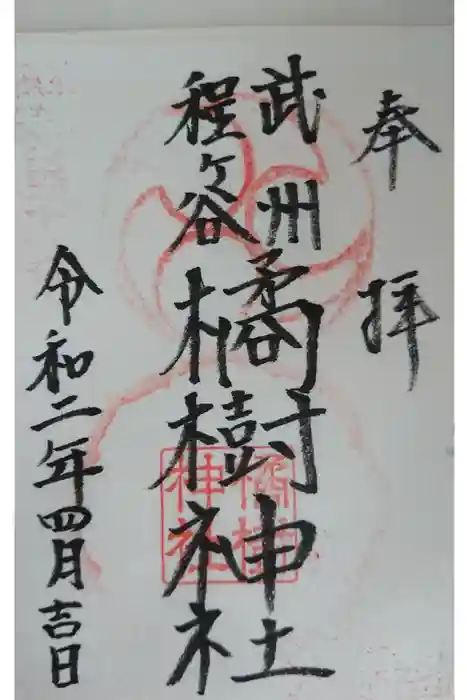 奉拝
武州
程ヶ谷
橘樹神社
令和二年四月吉日
橘樹
神社